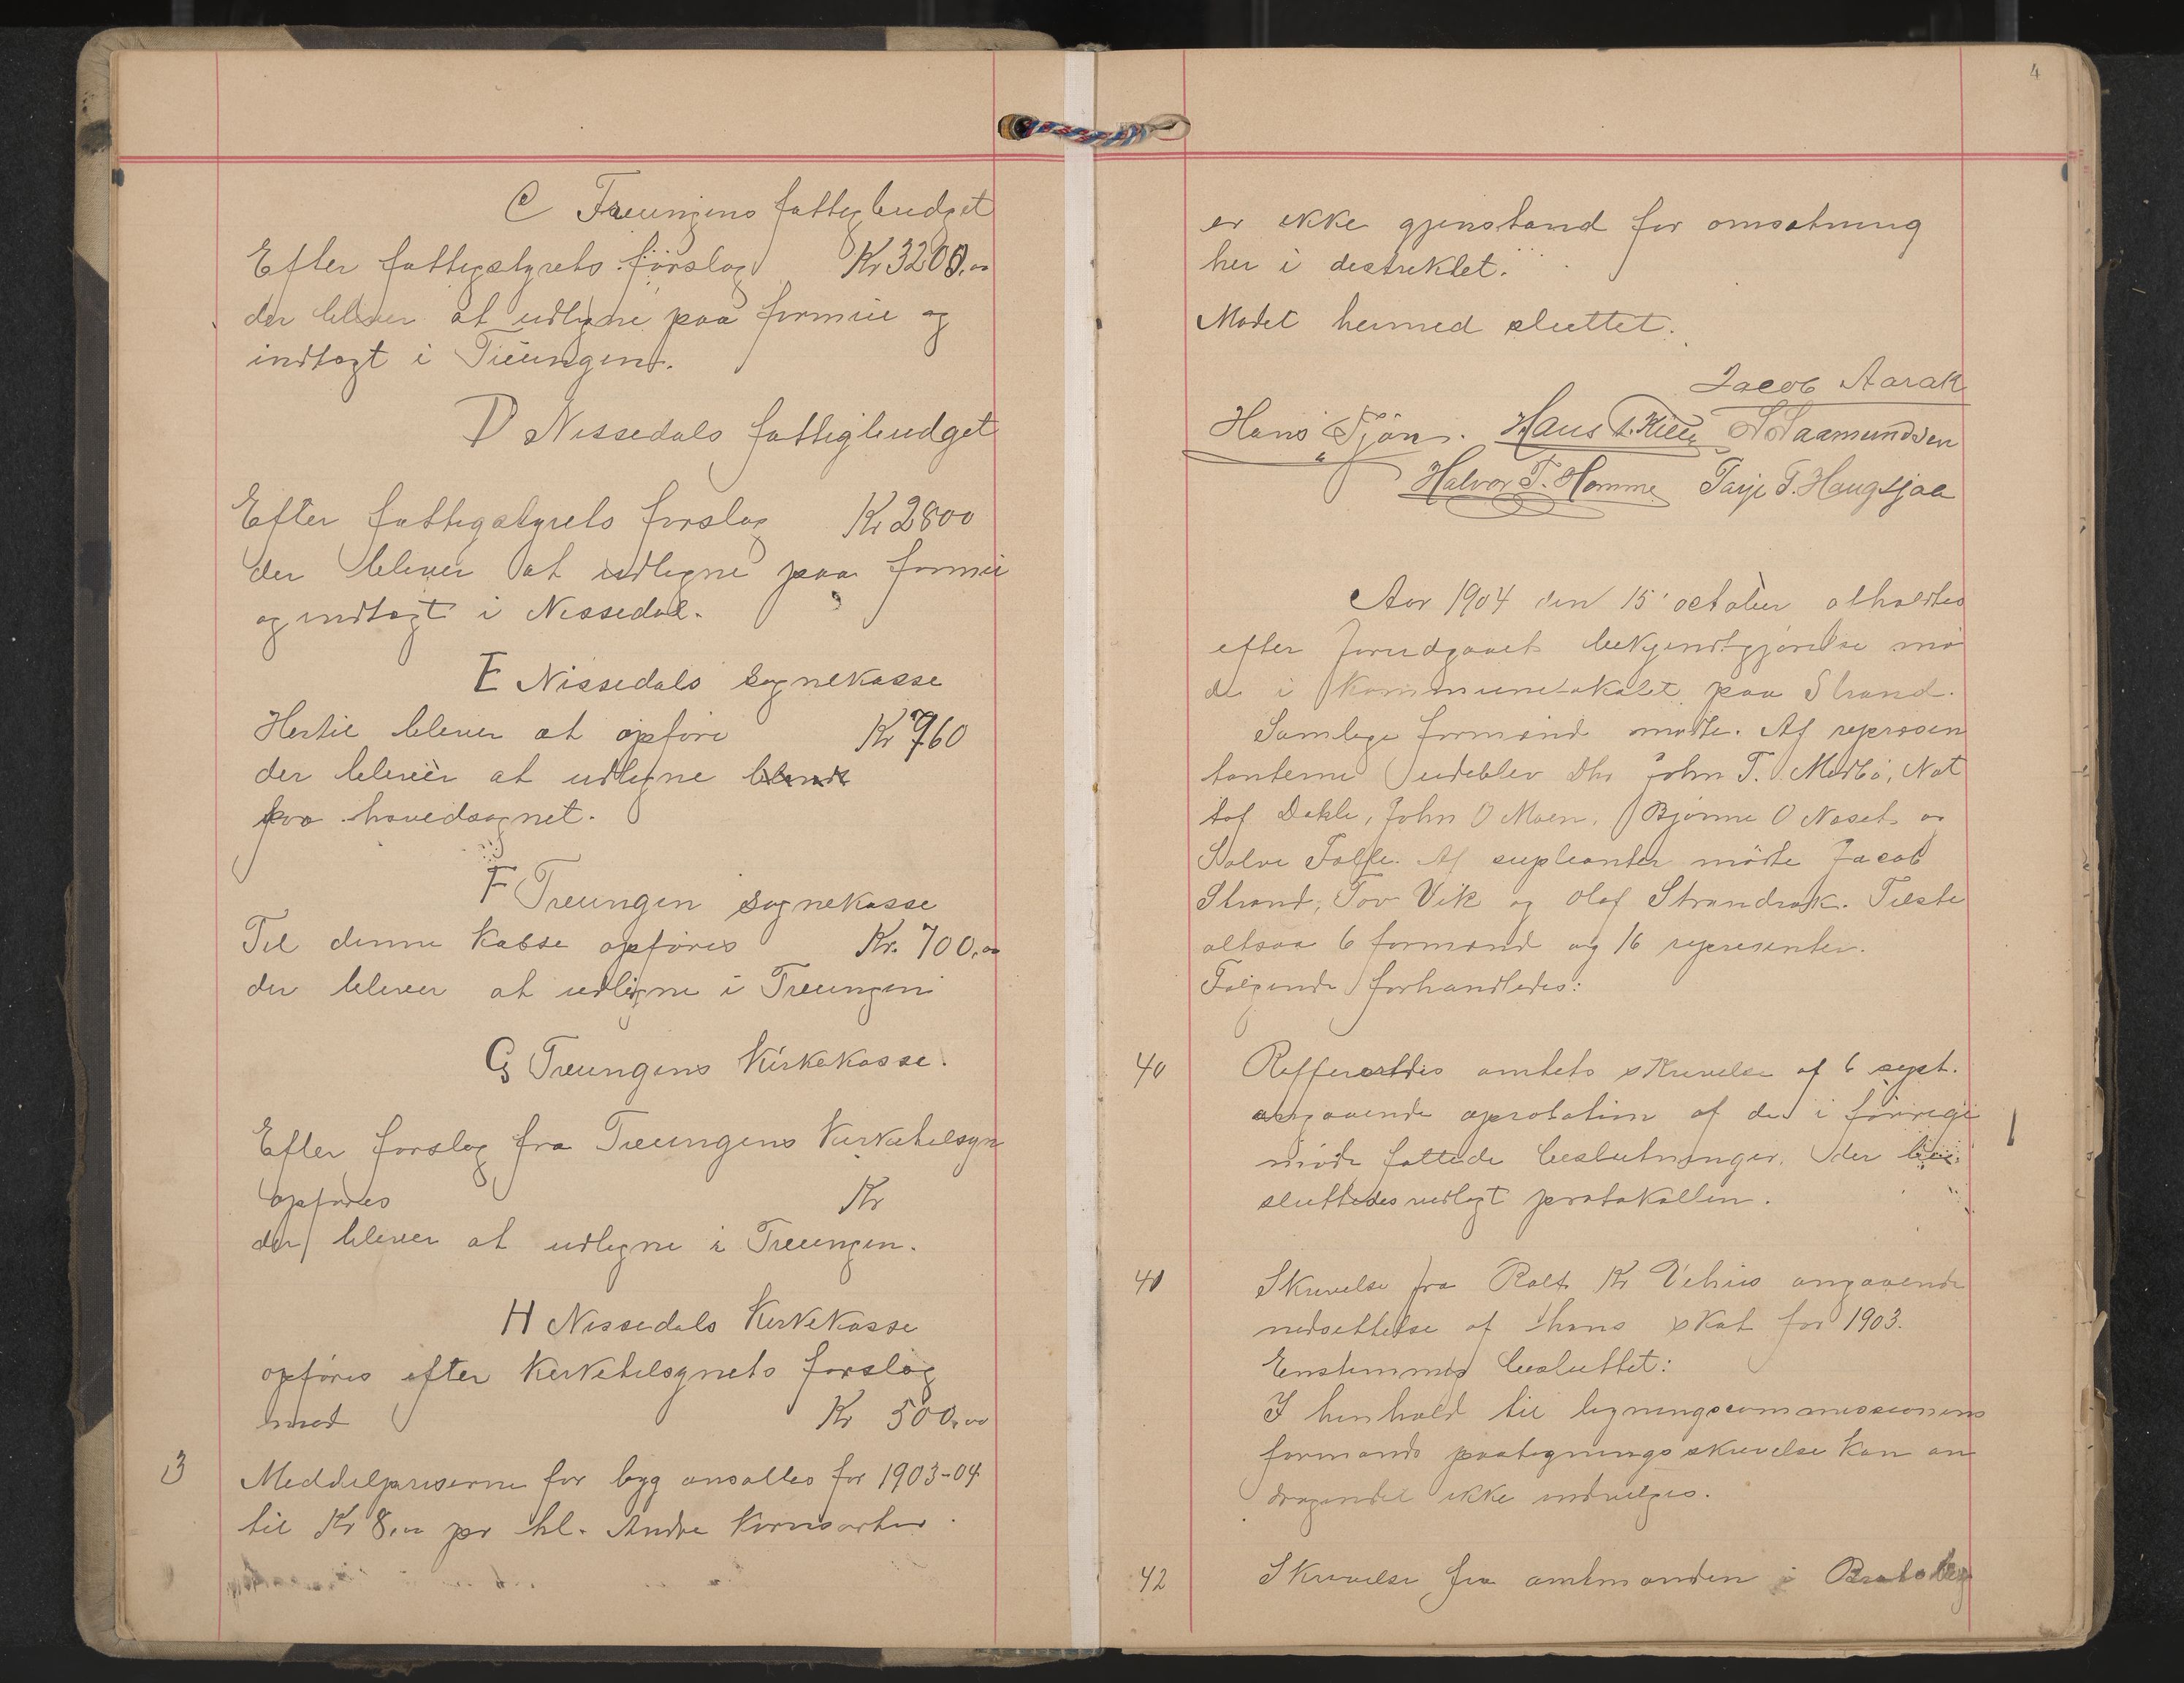 C Treungens fattigbudget
Efter fattigstyrets forslag Kr 3200.00
der bliver at udligne paa formue og
indtægt i Treungen.
D Nissedals fattigbudget
Efter fattigstyrets forslag Kr 2800
der bliver at udligne paa formue
og indtægt i Nissedal.
E Nissedals sognekasse
Hertil bliver at opføre Kr 760
der bliver at udligne
paa hovedsognet.
F Treungen sognekasse
Til denne kasse opføres Kr. 700.00
der bliver at udligne i Treungen
G Treungens Kirkekasse.
Efter forslag fra Treungens Kirketilsyn
opføres Kr
der bliver at udligne i Treungen.
H Nissedals Kirkekasse
opføres efter Kirketilsynets forslag
med Kr 500,00
3 Meddelpriserne for byg ansattes for 1903-04
til Kr 8.00 pr hl. Andre Kornsorter
4
er ikke gjenstand for omsætning
her i destriktet.
Mødet hermed sluttet.
Jacob Aarak
Hans Tjøn. Hans T. Kiile Aamundsen
Halvor T. Homme Tarje T. Haugsjaa
Aar 1904 den 15' october afholdtes
efter forudgaaet bekjendtgjørelse mø
de i Kommunelokalet paa Strand.
Samlige formænd mødte. Af repræsen
tanterne udeblev Dhr John T. Medbø, Not
tof Dekle, John O Moen, Bjønne O Næset og
Salve Tolfse. Af supleanter mødte Jacob
Strand, Tov Vik og Olaf Strandrak. Tilste
altsaa 6 formænd og 16 represænter.
Følgende forhandledes:
40 Refferertdes amtets skrivelse af 6 sept.
angaaende aprobation af de i forrige
møde fattede beslutninger, der
sluttedes vedlagt protokollen.
41 Skrivelse fra Ralf Kr Vehus angaaende
nedsettelse af hans skat for 1903.
Enstemmig besluttet:
I henhold til ligningscommissionens
formands paategningsskrivelse kan an
dragendet ikke indvilges.
42 Skrivelse fra amtmanden i Bratsberg